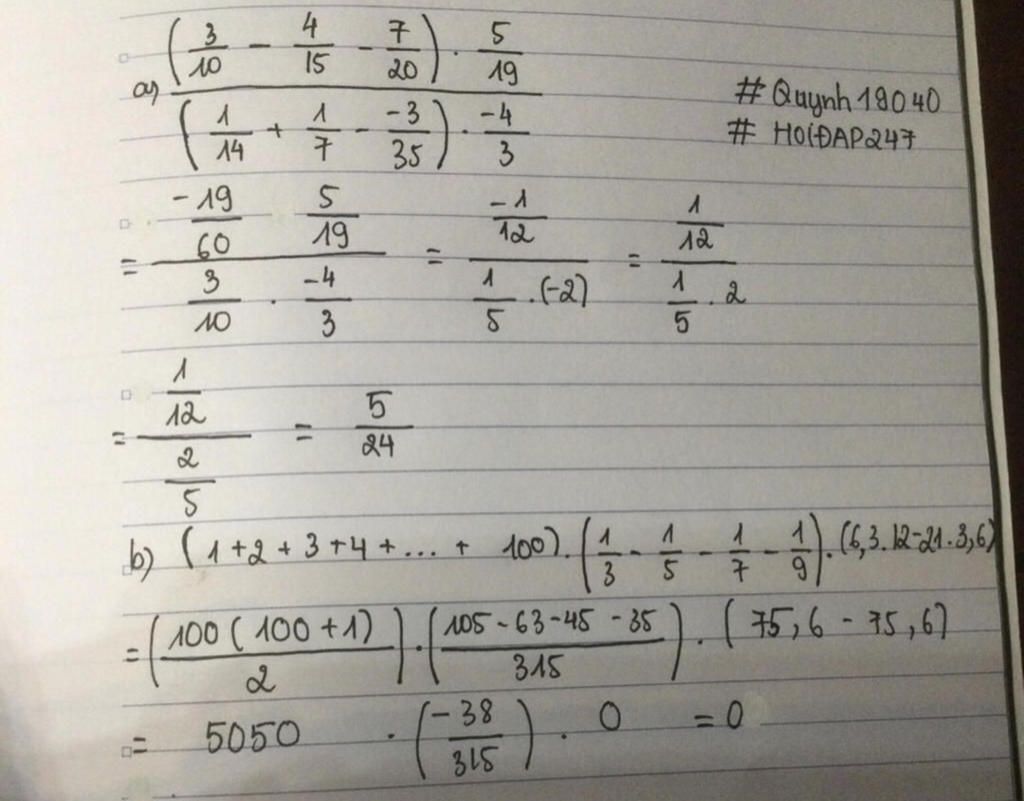 a) (3/10 - 4/15 - 7/20) . 5/19
(1/14 + 1/7 - -3/35) . -4/3
# Quynh19040
# HOIĐAP247
= -19/60 . 5/19 / 3/10 . -4/3 = -1/12 / 1/5 . (-2) = 1/12 / 1/5 . 2
= 1/12 / 2/5 = 5/24
b) (1+2+3+4+...+ 100) . (1/3 - 1/5 - 1/7 - 1/9) . (6,3.12-21.3,6)
= (100(100+1)/2) . (105-63-45-35/315) . (75,6 - 75,6)
= 5050 . (-38/315) . 0 = 0